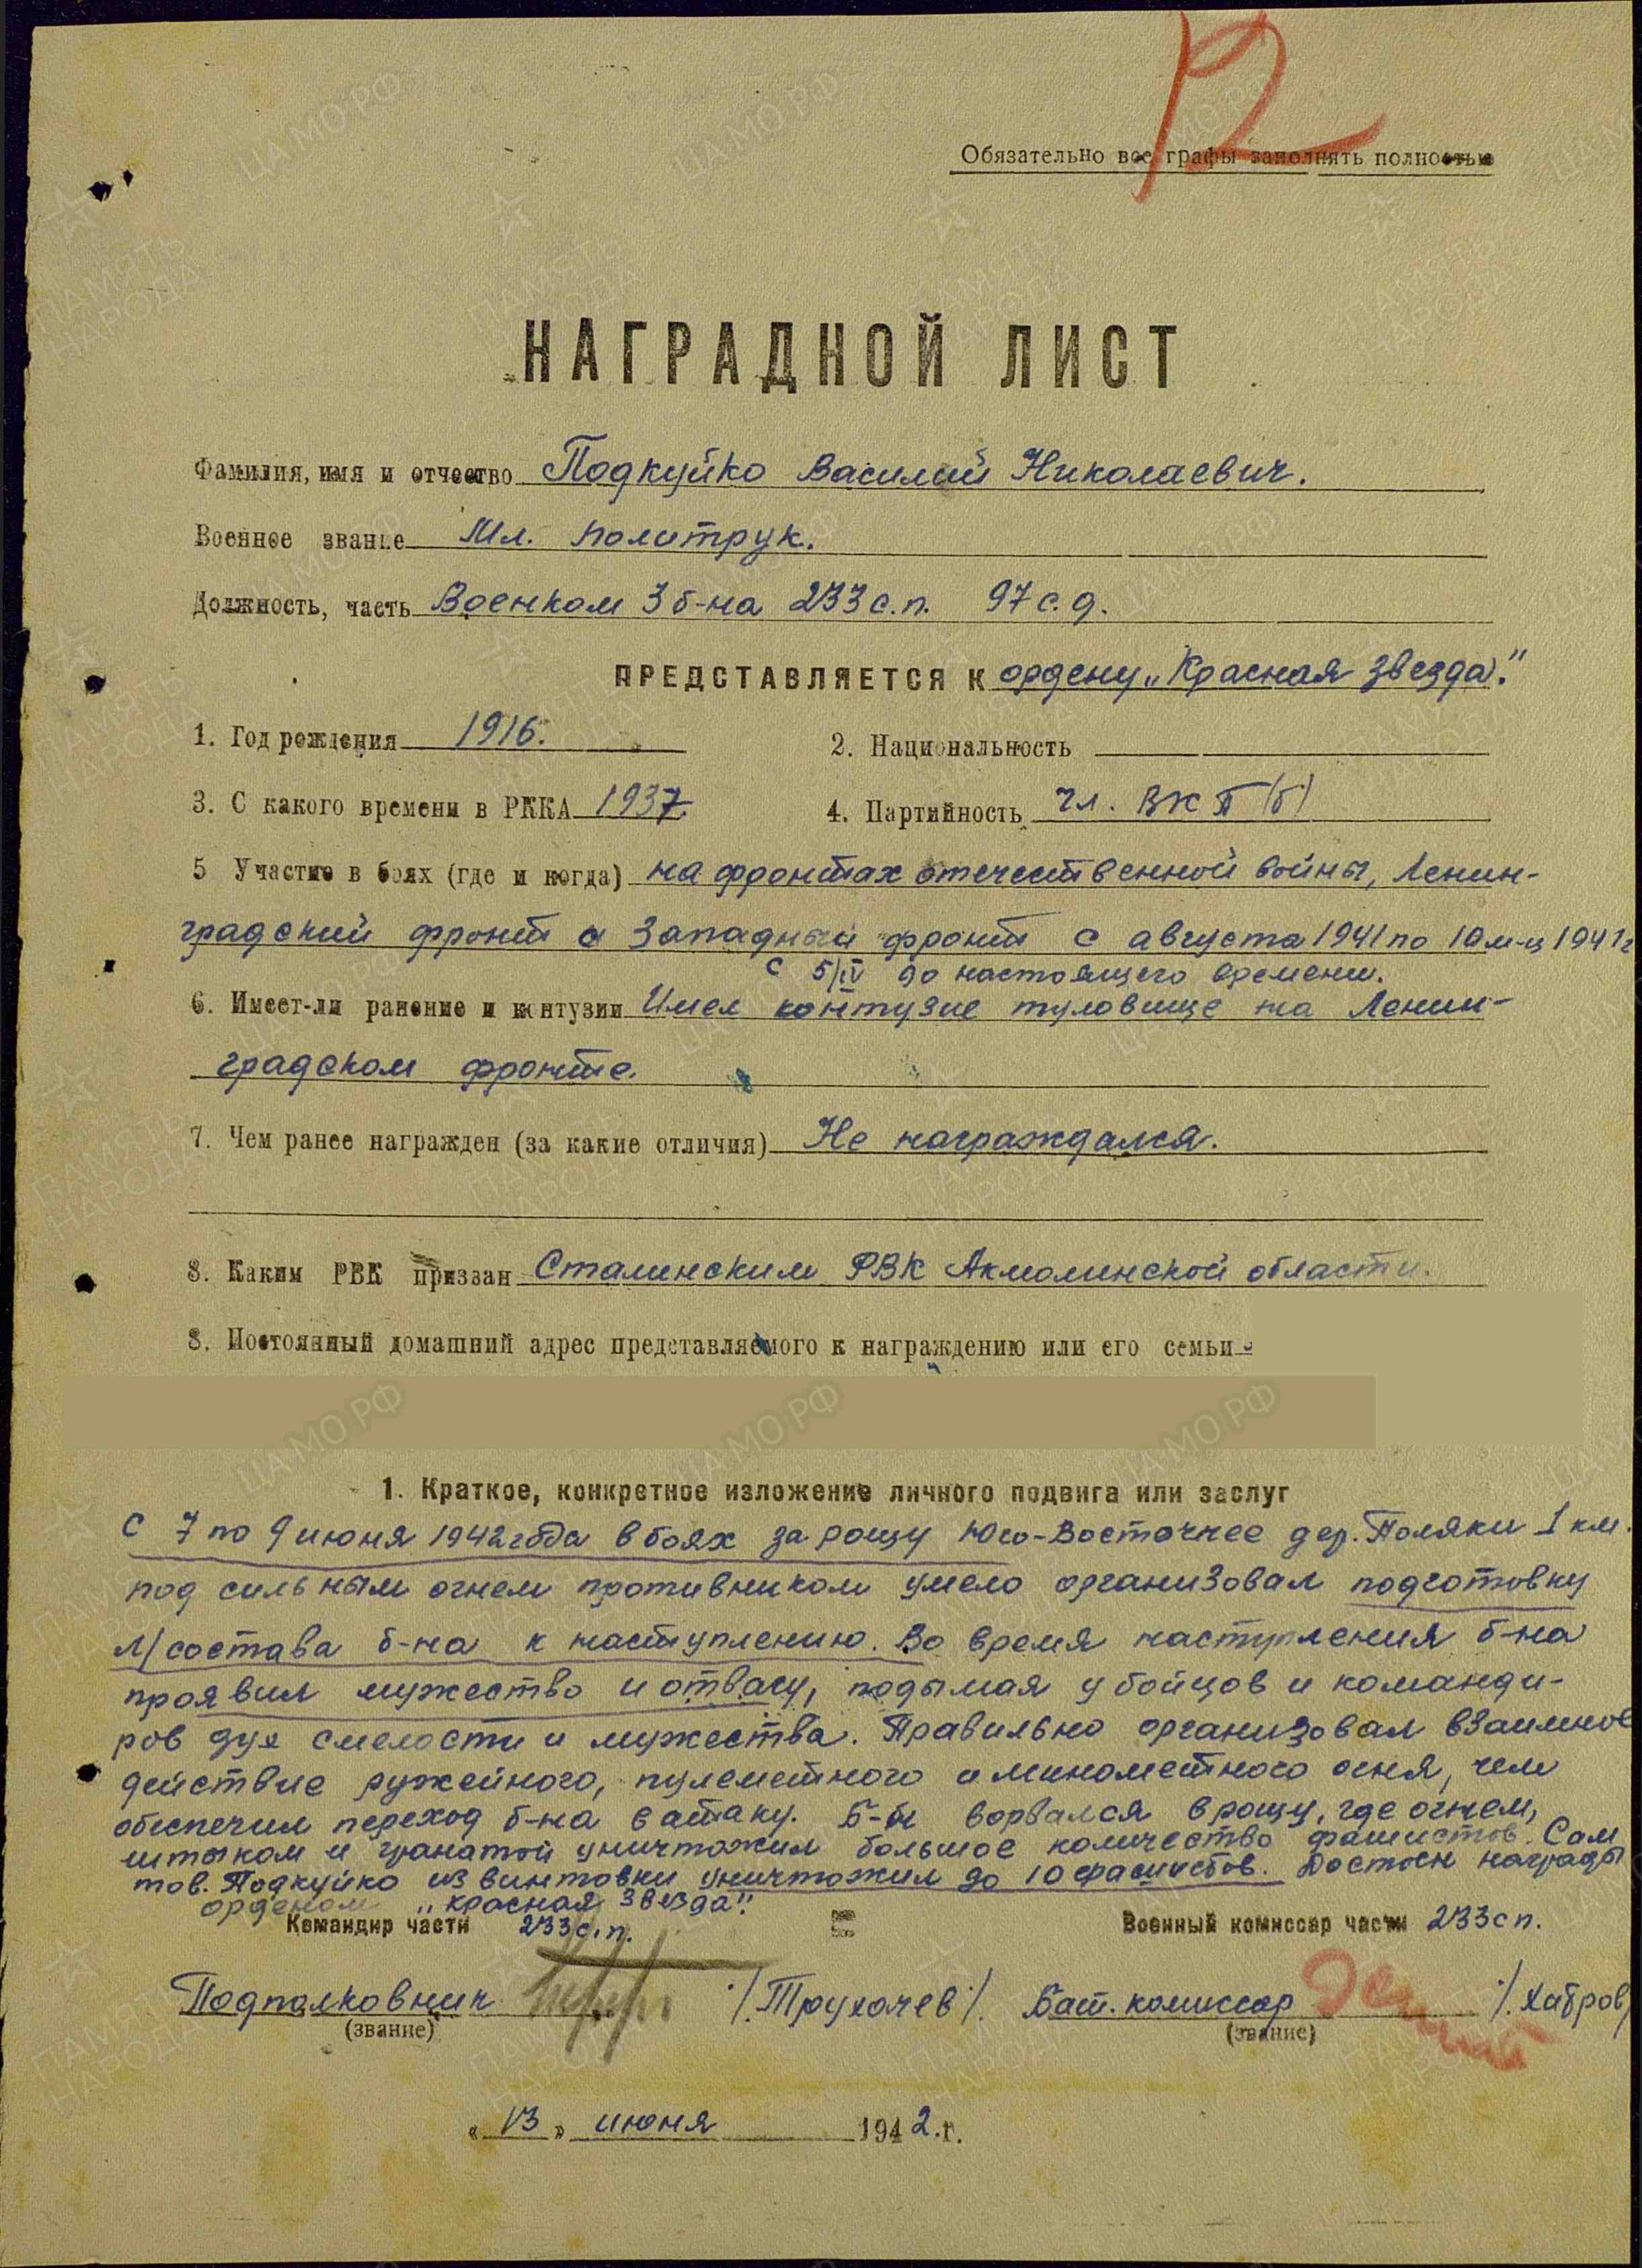 Обязательно все графы заполнять полностью
НАГРАДНОЙ ЛИСТ
Фамилия, имя и отчество Подкуйко Василий Николаевич.
Военное звание Мл. политрук.
Должность, часть Военком 3 б-на 233 с.п. 97 с.д.
ПРЕДСТАВЛЯЕТСЯ К ордену „Красная звезда".
1. Год рождения 1916. 2. Национальность
3. С какого времени в РККА 1937. 4. Партийность чл. ВКП(б)
5 Участие в боях (где и когда) на фронтах отечественной войны, Ленин-
градский фронт и Западный фронт с августа 1941 по 10 м-ц 1941 г
с 5/IV до настоящего времени.
6. Имеет-ли ранение и контузии Имел контузие туловище на Ленин-
градском фронте.
7. Чем ранее награжден (за какие отличия) Не награждался.
8. Каким РВК призван Сталинским РВК Акмолинской области.
8. Постоянный домашний адрес представляемого к награждению или его семьи
1. Краткое, конкретное изложение личного подвига или заслуг
С 7 по 9 июня 1942 года в боях за рощу Юго-Восточнее дер. Поляки 1 км.
под сильным огнем противником умело организовал подготовку
л/состава б-на к наступлению. Во время наступления б-на
проявил мужество и отвагу, подымая у бойцов и команди-
ров дух смелости и мужества. Правильно организовал взаимное
действие ружейного, пулеметного и минометного огня, чем
обеспечил переход б-на в атаку. Б-н ворвался в рощу, где огнем,
штыком и гранатой уничтожил большое количество фашистов. Сам
тов. Подкуйко из винтовки уничтожил до 10 фашистов. Достоен награды
орденом „красная звезда".
Командир части 233 с.п. Военный комиссар части 233 сп.
Подполковник /Трухачев/. Бат. комиссар /Хабров/
(звание) (звание)
« 13 » июня 1942.г.
ЦАМО РФ
ПАМЯТЬ НАРОДА